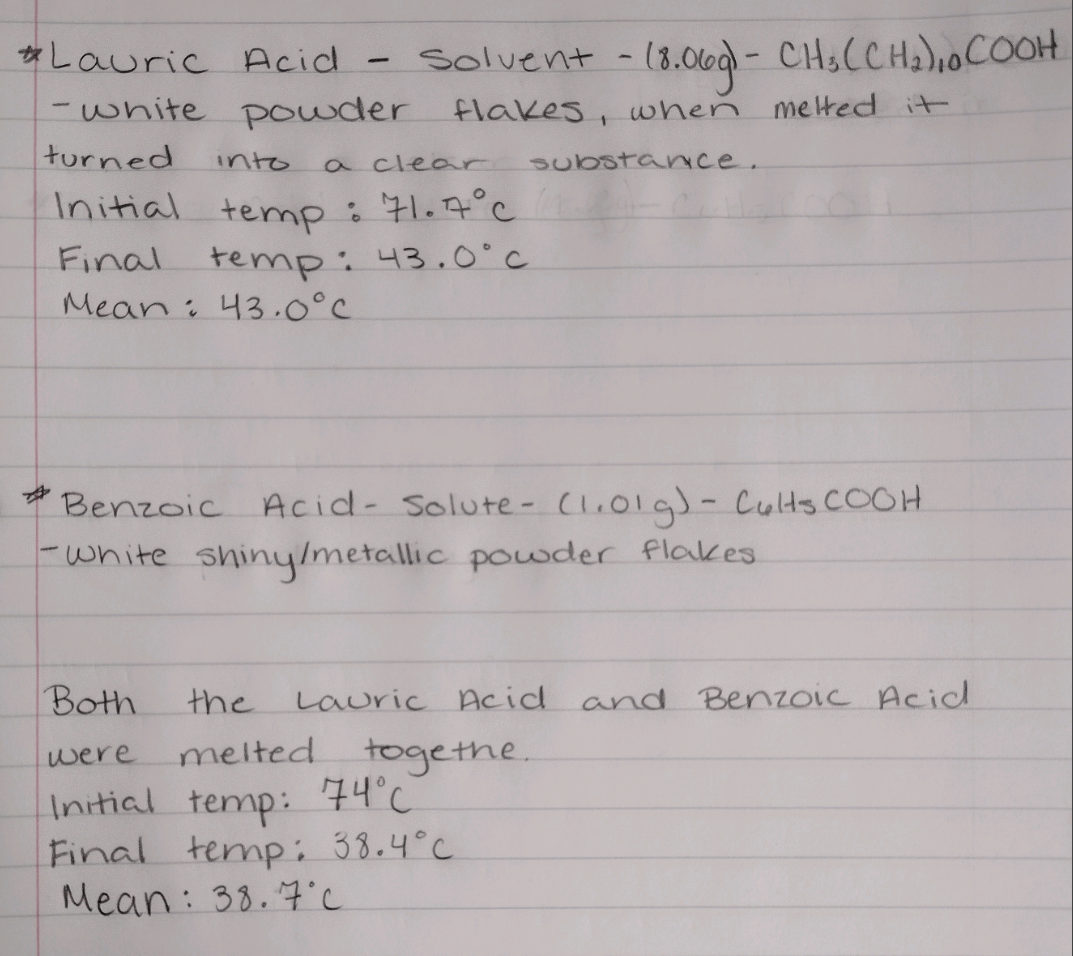 *Lauric Acid - Solvent - (8.06g) - CH₃(CH₂)₁₀COOH
- white powder flakes, when melted it
turned into a clear substance.
Initial temp: 71.7°C
Final temp: 43.0°C
Mean: 43.0°C
*Benzoic Acid - Solute - (1.01g) - C₆H₅COOH
- white shiny/metallic powder flakes
Both the Lauric Acid and Benzoic Acid
were melted togethe.
Initial temp: 74°C
Final temp: 38.4°C
Mean: 38.7°C